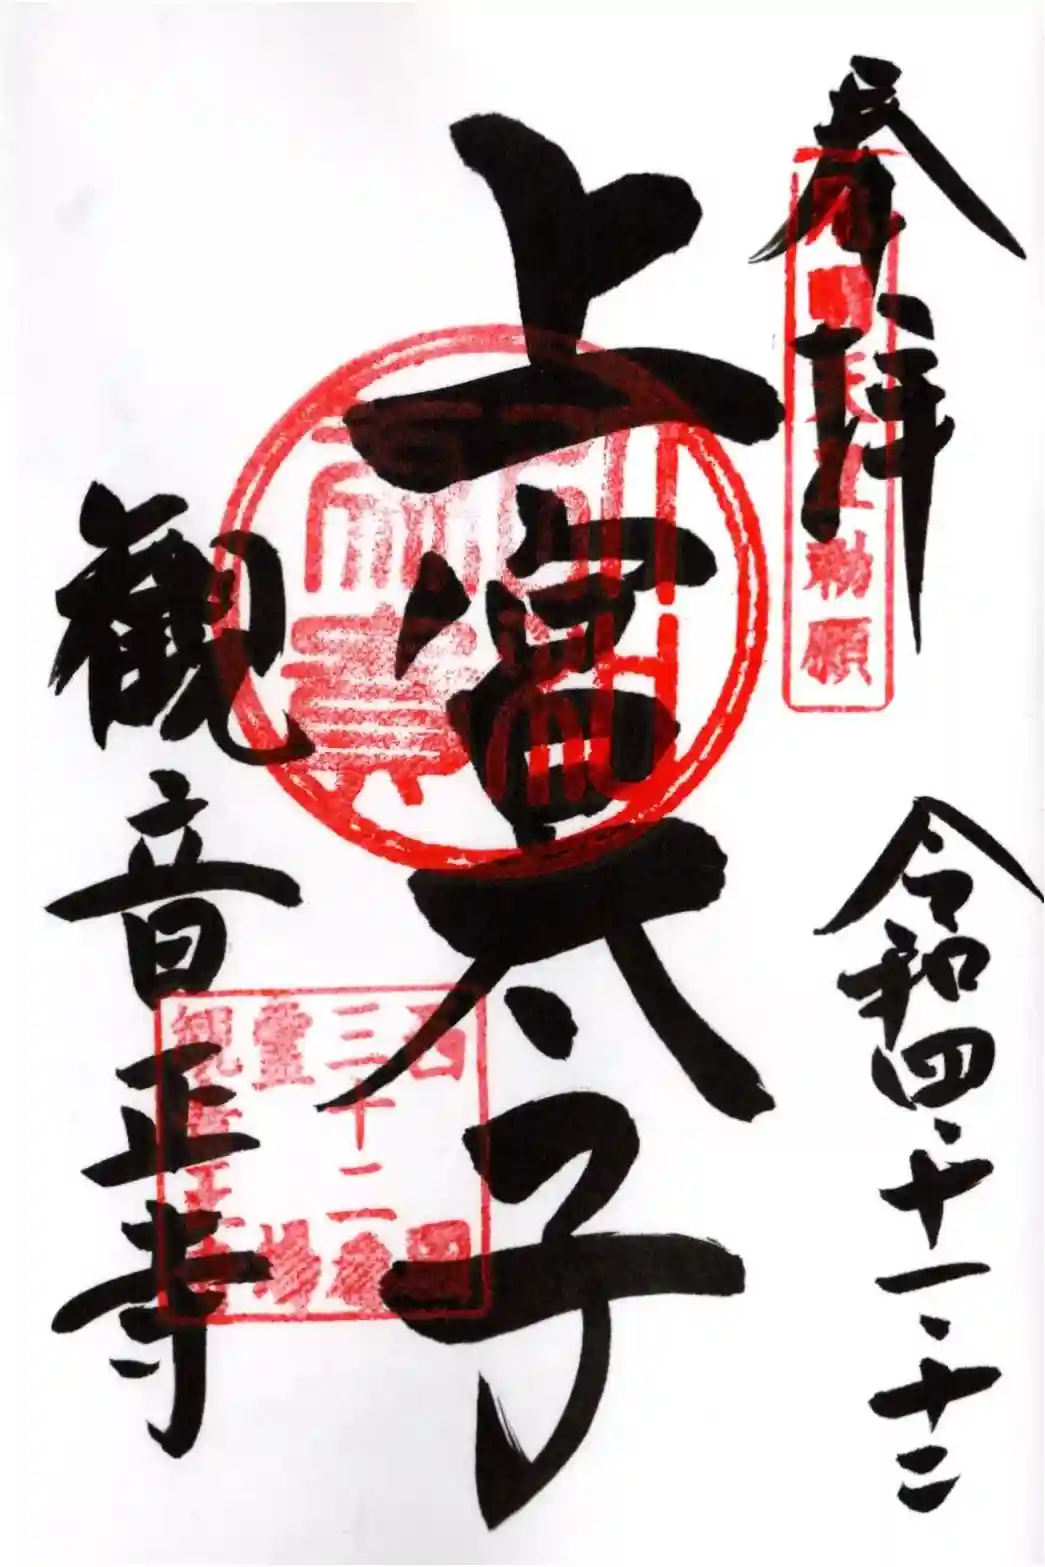 奉拝
令和四・十一・十二
上宮太子
観音正寺
用明天皇勅願
西国
三十二番
霊場
観音正寺